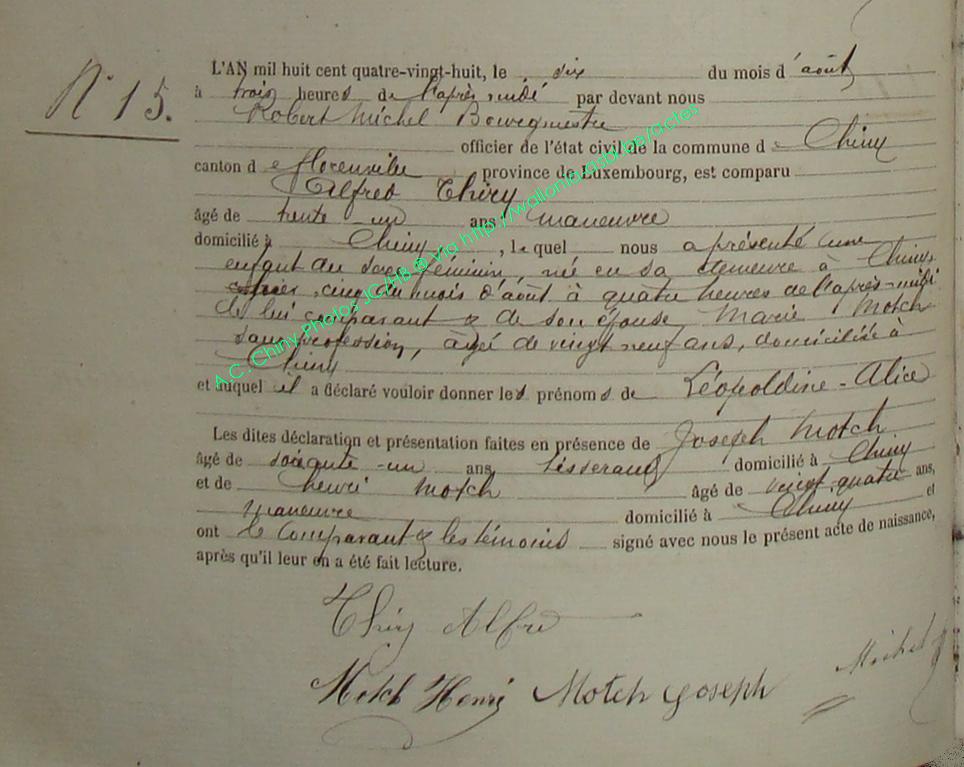 N° 15.
L'AN mil huit cent quatre-vingt-huit, le six du mois d'août
à trois heures de l'après midi par devant nous
Robert Michel Bourgmestre
officier de l'état civil de la commune de Chiny
canton de florenville province de Luxembourg, est comparu
Alfred Thiry
âgé de trente-un ans, maneuvre
domicilié à Chiny, lequel nous a présenté une
enfant du sexe féminin, née en sa demeure à Chiny,
hier, cinq du mois d'août à quatre heures de l'après-midi
de lui comparant & de son épouse, Marie Motch
sans profession, âgée de vingt neuf ans, domiciliée à
Chiny
et auquel il a déclaré vouloir donner les prénoms de Léopoldine-Alice
Les dites déclaration et présentation faites en présence de Joseph Motch
âgé de soixante-un ans, tisserand domicilié à Chiny
et de henri Motch âgé de vingt-quatre ans,
maneuvre domicilié à Chiny et
ont le Comparant & les témoins signé avec nous le présent acte de naissance,
après qu'il leur en a été fait lecture.
Thiry Alfred
Motch Henri Motch Joseph Michel
A.C. Chiny Photos JC/HB @ via http://walloniasbl.be/actes